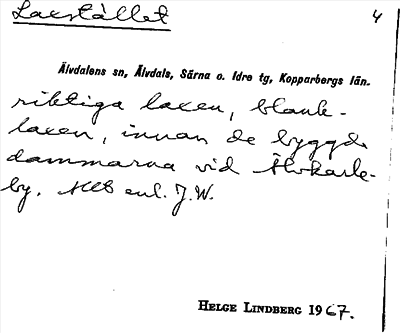 Laxstället 4
Älvdalens sn, Älvdals, Särna o. Idre tg, Kopparbergs län.
riktiga laxen, blank-
laxen, innan de byggde
dammarna vid Älvkarle-
by. enl. J.W.
HELGE LINDBERG 1967.